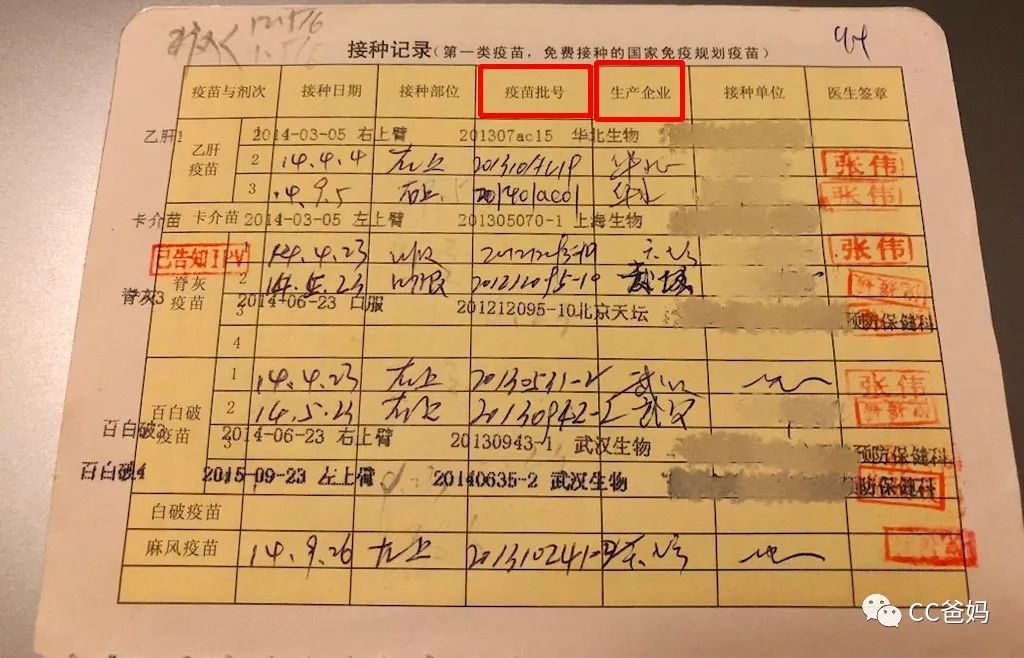 接种记录(第一类疫苗，免费接种的国家免疫规划疫苗)
疫苗与剂次 接种日期 接种部位 疫苗批号 生产企业 接种单位 医生签章
乙肝1 1 2014-03-05 右上臂 201307ac15 华北生物
乙肝疫苗 2 14.4.4 右上 华北 张伟
3 14.9.5 右上 华北 张伟
卡介苗 卡介苗 2014-03-05 左上臂 201305070-1 上海生物
已告知IPV 1 14.4.23 口服 天坛 张伟
脊灰疫苗 2 14.5.23 口服 201212095-10
脊灰3 3 2014-06-23 口服 201212095-10 北京天坛 预防保健科
4
1 14.4.23 右上 20130531-2 武汉 张伟
百白破疫苗 2 14.5.23 右上 20130942-2 武汉
百白破3 3 2014-06-23 右上臂 20130943-1 武汉生物 预防保健科
百白破4 2015-09-23 左上臂 20140635-2 武汉生物 预防保健科
白破疫苗
麻风疫苗 14.9.26 右上
CC爸妈